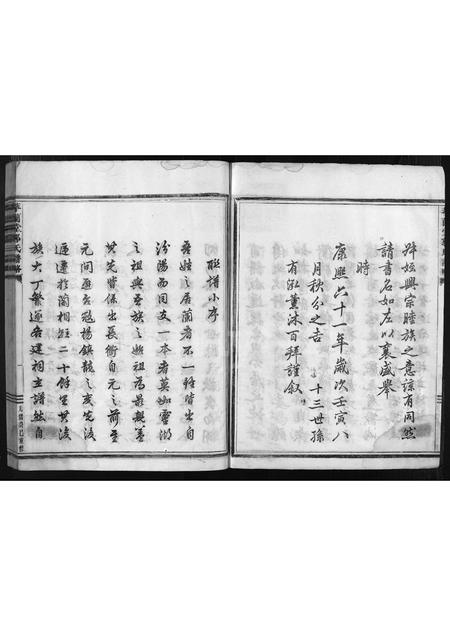 舜姪興宗睦族之意諒有同然
請書名如左以襄盛舉
時
康熙六十一年歲次壬寅八
月秋分之吉　十三世孫
有泓薰沐百拜謹叙
聯譜小序
吾姓之居蘭者不一種時出自
汾陽而同支一本者莫如靈湖
之祖與吾族之祖為最興蓋
其先皆係出長衡自元之前至
元間避台冠楊鎮龍之亂先後
遷於蘭相距二十餘里其後
族大丁繁遂各建祠立譜然自